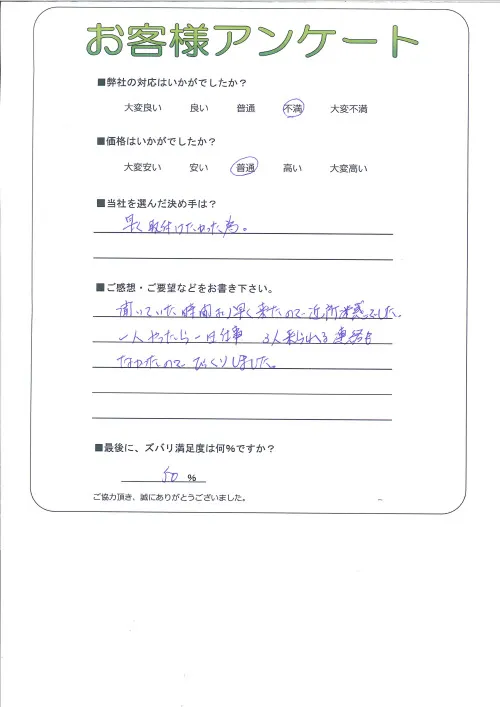 お客様アンケート
■弊社の対応はいかがでしたか?
大変良い 良い 普通 不満 大変不満
■価格はいかがでしたか?
大変安い 安い 普通 高い 大変高い
■当社を選んだ決め手は?
早く取付けたかった為。
■ご感想・ご要望などをお書き下さい。
聞いていた時間より早く来たので近所迷惑でした。
一人やったら一日仕事 3人来られる連絡も
なかったのでびっくりしました。
■最後に、ズバリ満足度は何%ですか?
50 %
ご協力頂き、誠にありがとうございました。